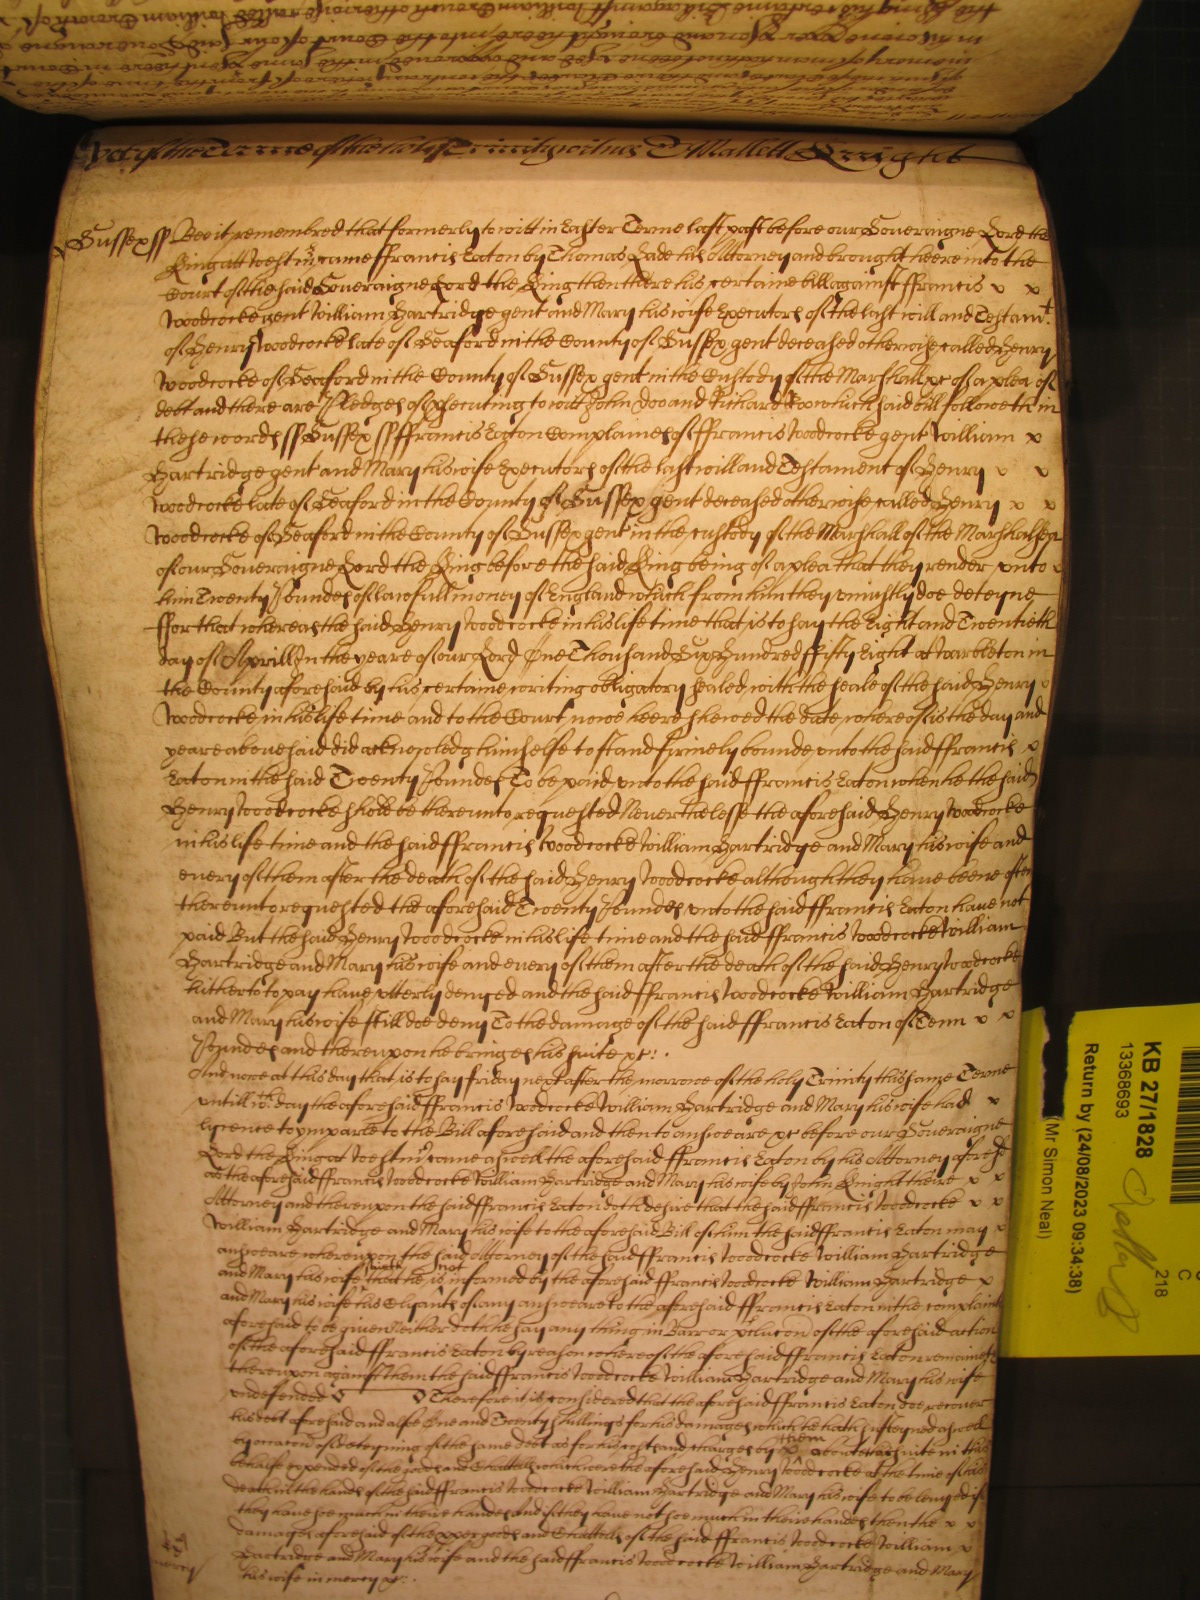 Yet of the Terme of the holy Trinity witnes T Mallett Knight
Sussex ss Bee it remembred that formerly to witt in Easter Terme last past before our Soueraigne Lord the
King att Westmr came ffrancis Eaton by Thomas Lade his Attorney and brought heere into the
Court of the said Soueraigne Lord the King then there his certaine bill against ffrancis x x
Woodcocke gent William Hartridge gent and Mary his wife Executors of the last will and Testamt
of Henry Woodcocke late of Seaford in the County of Sussex gent deceased otherwise called Henry
Woodcocke of Seaford in the County of Sussex gent in the Custody of the Marshall &c of a plea of
debt and there are Pledges of prosecuting to witt John doo and Richard Roo which said bill followeth in
these words ss Sussex ss ffrancis Eaton Complaines of ffrancis Woodcocke gent William x
Hartridge gent and Mary his wife Executors of the last will and Testament of Henry x x
Woodcocke late of Seaford in the County of Sussex gent deceased otherwise called Henry x x
Woodcocke of Seaford in the County of Sussex gent in the custody of the Marshall of the Marshalsea
of our Soueraigne Lord the King before the said King being of a plea that they render unto
him Twenty Poundes of lawfull money of England which from him they uniustly doe deteyne
ffor that whereas the said Henry Woodcocke in his life time that is to say the Eight and Twentieth
day of Aprill In the yeare of our Lord One Thousand Six Hundred ffifty Eight at Warbleton in
the County aforesaid by his certaine writing obligatory sealed with the seale of the said Henry
Woodcocke in his life time and to the Court nowe heere shewed the date whereof is the day and
yeare aboue said did acknowledg himselfe to stand firmely bounde unto the said ffrancis x
Eaton in the said Twenty Poundes To be paid unto the said ffrancis Eaton when he the said
Henry Woodcocke shold be thereunto requested Neuerthelesse the aforesaid Henry Woodcocke
in his life time and the said ffrancis Woodcocke William Hartridge and Mary his wife and
euery of them after the death of the said Henry Woodcocke although they haue beene often
thereunto requested the aforesaid Twenty Poundes unto the said ffrancis Eaton haue not
paid But the said Henry Woodcocke in his life time and the said ffrancis Woodcocke William
Hartridge and Mary his wife and euery of them after the death of the said Henry Woodcocke
hitherto to pay haue utterly denyed and the said ffrancis Woodcocke William Hartridge
and Mary his wife still doe deny To the damage of the said ffrancis Eaton of Tenn x x
Poundes and thereupon he bringes his suite &c.
And nowe at this day that is to say friday next after the morrowe of the holy Trinity this same Terme
untill wch day the aforesaid ffrancis Woodcocke William Hartridge and Mary his wife had x
lycence to imparle to the Bill aforesaid and then to answeare &c before our Soueraigne
Lord the King at Westmr came aswell the aforesaid ffrancis Eaton by his Attorney aforesd
as the aforesaid ffrancis Woodcocke William Hartridge and Mary his wife by John Knight theire x x
Attorney and thereupon the said ffrancis Eaton doth desire that the said ffrancis Woodcocke x x
William Hartridge and Mary his wife to the aforesaid Bill of him the said ffrancis Eaton may x
answeare whereupon the said Attorney of the said ffrancis Woodcocke William Hartridge
and Mary his wife saieth that he is not informed by the aforesaid ffrancis Woodcocke William Hartridge x
and Mary his wife his Clyants of any answeare to the aforesaid ffrancis Eaton in the complaint
aforesaid to be given Neither doth he say any thing in Barr or p'clucon of the aforesaid action
of the aforesaid ffrancis Eaton by reason whereof the aforesaid ffrancis Eaton remaineth
thereupon against them the said ffrancis Woodcocke William Hartridge and Mary his wife
undefended Therefore it is considered that the aforesaid ffrancis Eaton doe recouer
his debt aforesaid and alsoe One and Twenty shillings for his damages which he hath susteyned aswell
by occacon of deteyning of the same debt as for his costs and charges by them about his suite in this
behalfe expended of the goods and Chattells which were the aforesaid Henry Woodcocke at the time of his
death in the hands of the said ffrancis Woodcocke William Hartridge and Mary his wife to be leuyed if
they haue soe much in theire handes And if they haue not soe much in theire handes then the x x
damages aforesaid of the proper goods and Chattells of the said ffrancis Woodcocke William x
Hartridge and Mary his wife and the said ffrancis Woodcocke William Hartridge and Mary
his wife in mercy &c.
mercy
KB 27/1828
13368693
Return by (24/08/2023 09:34:38)
(Mr Simon Neal)
218
C